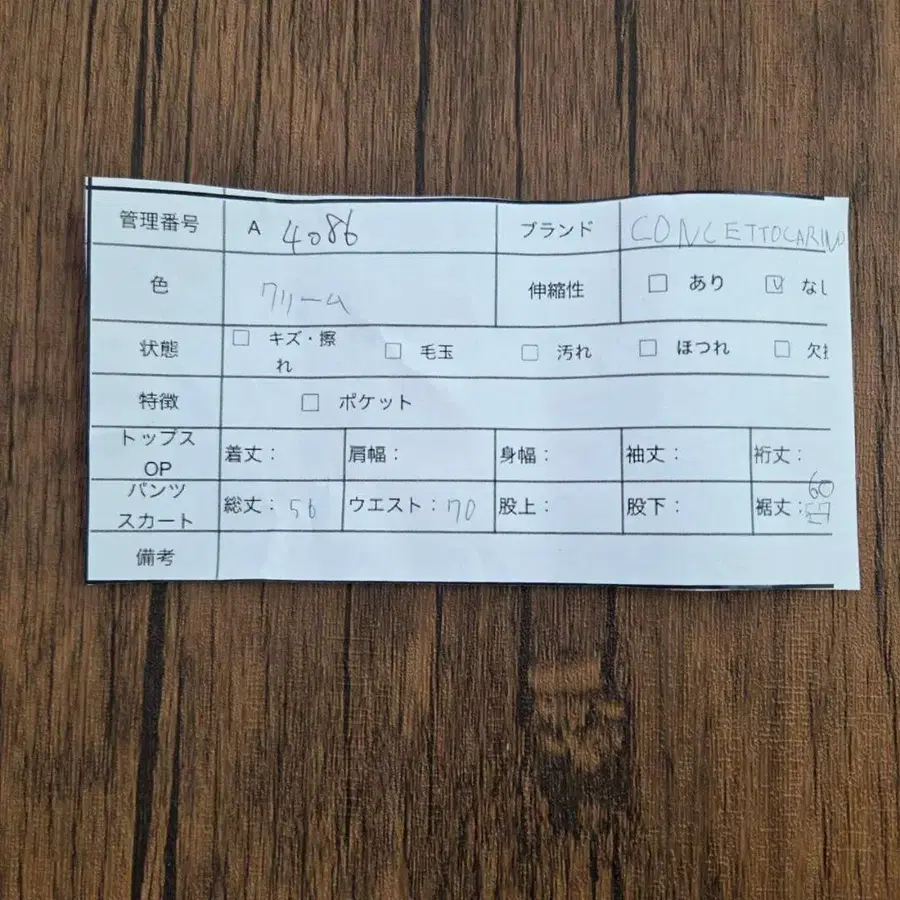 管理番号 A 4086 ブランド CONCETTOCARINO
色 クリーム 伸縮性 □ あり ☑ なし
状態 □ キズ・擦れ □ 毛玉 □ 汚れ □ ほつれ □ 欠
特徴 □ ポケット
トップス OP 着丈： 肩幅： 身幅： 袖丈： 裄丈：
パンツ スカート 総丈：56 ウエスト：70 股上： 股下： 裾丈：60
備考